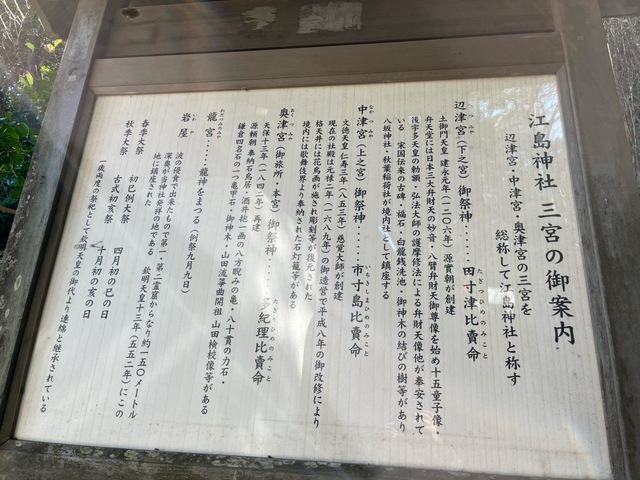 江島神社 三宮の御案内
辺津宮・中津宮・奥津宮の三宮を
総称して江島神社と称す
辺津宮（下之宮）御祭神・・・・田寸津比賣命
へつみや
たぎつひめのみこと
土御門天皇 建永元年（一二〇六年）源實朝が創建
弁天堂には日本三大弁財天の妙音・八臂弁財天御尊像を始め十五童子像・
後宇多天皇の勅額・弘法大師の護摩修法による弁財天像他が奉安されて
いる 宋国伝来の古碑・福石・白龍銭洗池・御神木の結びの樹等があり
八坂神社・秋葉稲荷社が境内社として鎮座する
中津宮（上之宮）御祭神・・・・市寸島比賣命
なかつみや
いちきしまひめのみこと
文徳天皇 仁寿三年（八五三年）慈覚大師が創建
現在の社殿は元禄二年（一六八九年）の御造営で平成八年の御改修により
格天井には花鳥画が施され彫刻等が復元された
境内には歌舞伎界より奉納された石灯籠等がある
奥津宮（御旅所・本宮）御祭神・・・・多紀理比賣命
おくつみや
たぎりひめのみこと
天保十三年（一八四二年）再建
源頼朝奉納石鳥居・酒井抱一画の八方睨みの亀・八十貫の力石・
鎌倉四名石の一つ亀甲石・御神木・山田流箏曲開祖 山田検校像等がある
龍宮・・・・・龍神をまつる（例祭九月九日）
わだつのみや
岩屋・・・・・波の侵食で出来たもので第一・第二霊窟からなり約一五〇メートル
いわや
深島が当神社発祥の地である 欽明天皇十三年（五五二年）にこの
地に鎮座された
春季大祭 初巳例大祭 四月初の巳の日
秋季大祭 古式初亥祭 十月初の亥の日
一歳両度の祭祀として欽明天皇の御代より連綿と継承されている